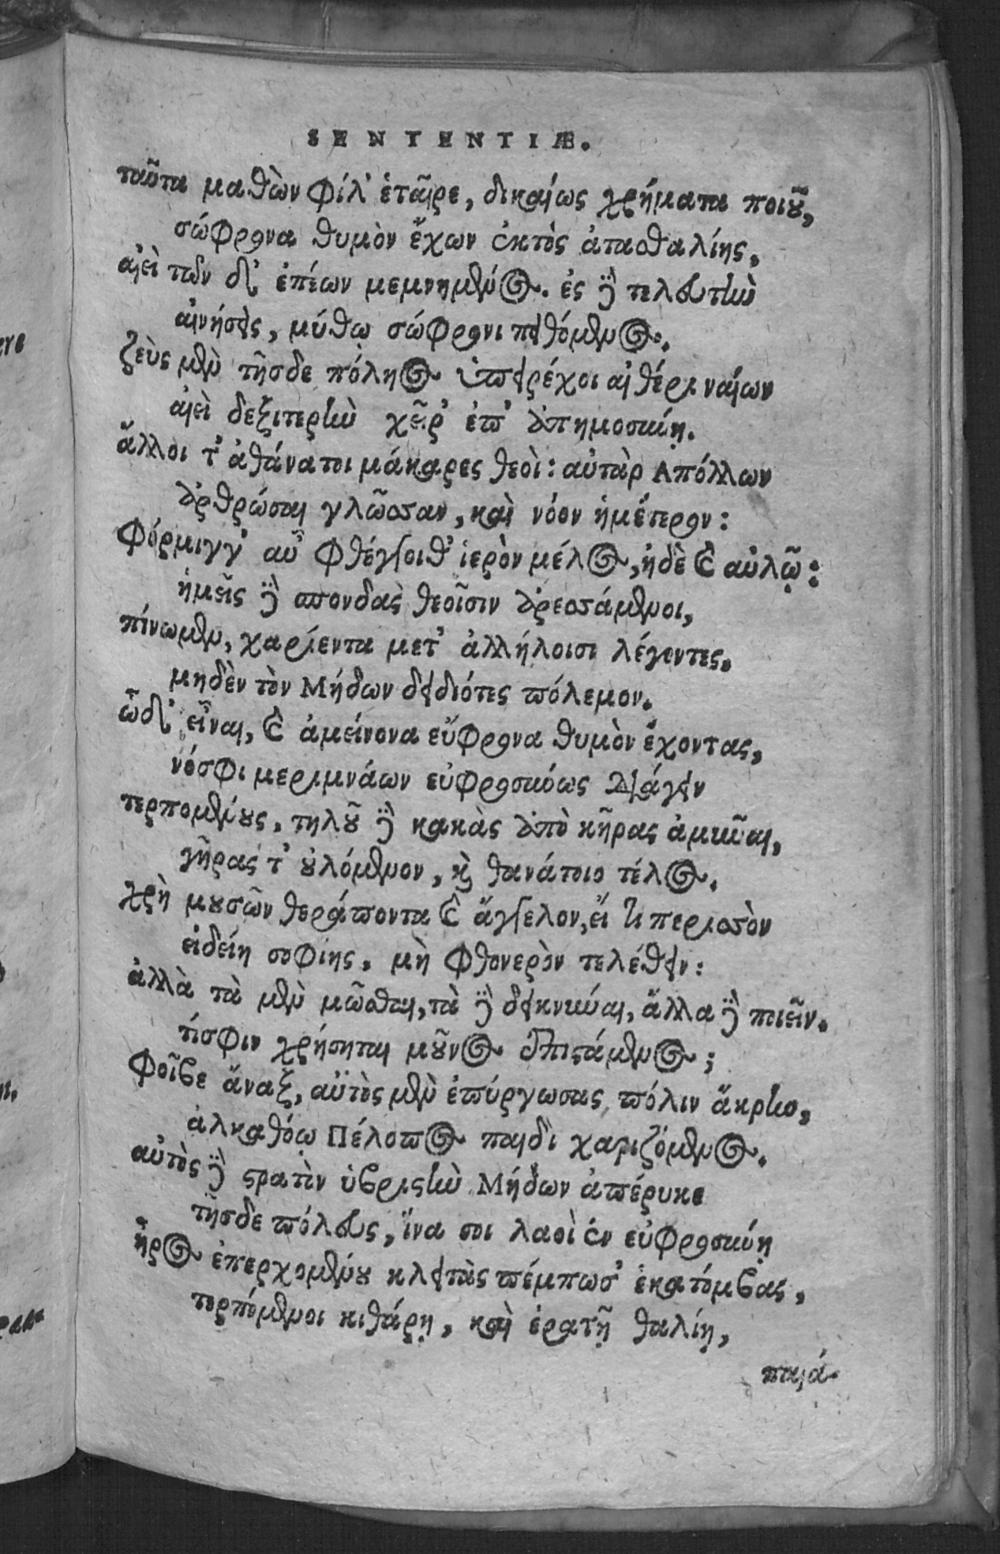 SENTENTIÆ.
ταῦτα μαθὼν φίλ' ἑταῖρε, δικαίως χρήματα ποιοῦ,
σώφρονα θυμὸν ἔχων ἐκτὸς ἀτασθαλίης,
αἰεὶ τῶν δ' ἐπέων μεμνημένος. ἐς δὲ τελευτὴν
αἰνήσεις, μύθῳ σώφρονι πειθόμενος.
ζεὺς μὲν τῆσδε πόληος ὑπειρέχοι αἰθέρι ναίων
αἰεὶ δεξιτερὴν χεῖρ' ἐπ' ἀπημοσύνῃ.
ἄλλοι τ' ἀθάνατοι μάκαρες θεοὶ: αὐτὰρ Απόλλων
ὀρθρώσαι γλῶσσαν, καὶ νόον ἡμέτερον:
Φόρμιγγ' αὖ φθέγγοιθ' ἱερὸν μέλος, ἠδὲ καὶ αὐλῷ:
ἡμεῖς δὲ σπονδὰς θεοῖσιν ἀρεσσάμενοι,
πίνωμεν, χαρίεντα μετ' ἀλλήλοισι λέγοντες.
μηδὲν τὸν Μήδων δειδιότες πόλεμον.
ὧδ' εἶναι, καὶ ἀμείνονα εὔφρονα θυμὸν ἔχοντας,
νόσφι μεριμνάων εὐφροσύνως διάγειν
τερπομένους, τηλοῦ δὲ κακὰς ἀπὸ κῆρας ἀμῦναι,
γῆρας τ' οὐλόμενον, καὶ θανάτοιο τέλος.
χρὴ μουσῶν θεράποντα καὶ ἄγγελον, εἴ τι περισσὸν
εἰδείη σοφίης, μὴ φθονερὸν τελέθειν:
ἀλλὰ τὰ μὲν μῶσθαι, τὰ δὲ δεικνύναι, ἄλλα δὲ ποιεῖν.
τί σφιν χρήσηται μοῦνος ἐπιστάμενος;
Φοῖβε ἄναξ, αὐτὸς μὲν ἐπύργωσας πόλιν ἄκρην,
ἀλκαθόῳ Πέλοπος παιδὶ χαριζόμενος.
αὐτὸς δὲ στρατὸν ὑβριστὴν Μήδων ἀπέρυκε
τῆσδε πόλευς, ἵνα σοι λαοὶ ἐν εὐφροσύνῃ
ἦρος ἐπερχομένου κλειτὰς πέμπωσ' ἑκατόμβας,
τερπόμενοι κιθάρῃ, καὶ ἐρατῇ θαλίῃ,
παιά-